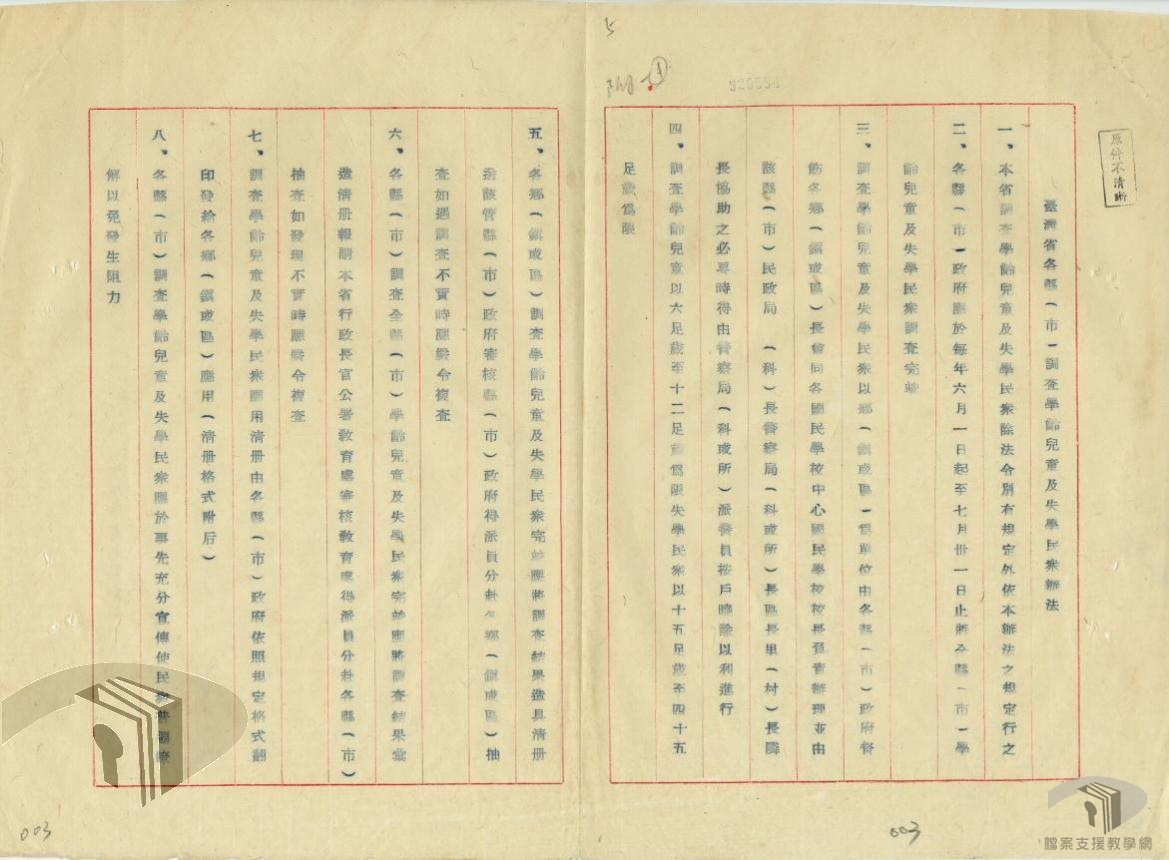 原件不清晰
920654
臺灣省各縣(市)調查學齡兒童及失學民衆辦法
一、本省調查學齡兒童及失學民衆除法令別有規定外依本辦法之規定行之
二、各縣(市)政府應於每年六月一日起至七月卅一日止將全縣(市)學
齡兒童及失學民衆調查完竣
三、調查學齡兒童及失學民衆以鄉(鎮或區)爲單位由各縣(市)政府督
飭各鄉(鎮或區)長會同各國民學校中心國民學校校長負責辦理並由
該縣(市)民政局 (科)長警察局(科或所)長區長里(村)長隣
長協助之必要時得由警察局(科或所)派警員按戶曉諭以利進行
四、調查學齡兒童以六足歲至十二足歲爲限失學民衆以十五足歲至四十五
足歲爲限
五、各鄉(鎮或區)調查學齡兒童及失學民衆完竣應將調查結果造具清册
送該管縣(市)政府審核縣(市)政府得派員分赴各鄉(鎮或區)抽
查如遇調查不實時應嚴令複查
六、各縣(市)調查全縣(市)學齡兒童及失學民衆完竣應將調查結果彙
造清册報請本省行政長官公署教育處審核教育處得派員分赴各縣(市)
抽查如發現不實時應嚴令複查
七、調查學齡兒童及失學民衆應用清册由各縣(市)政府依照規定格式翻
印發給各鄉(鎮或區)應用(清册格式附后)
八、各縣(市)調查學齡兒童及失學民衆應於事先充分宣傳使民衆普遍瞭
解以免發生阻力
003
003
檔案支援教學網